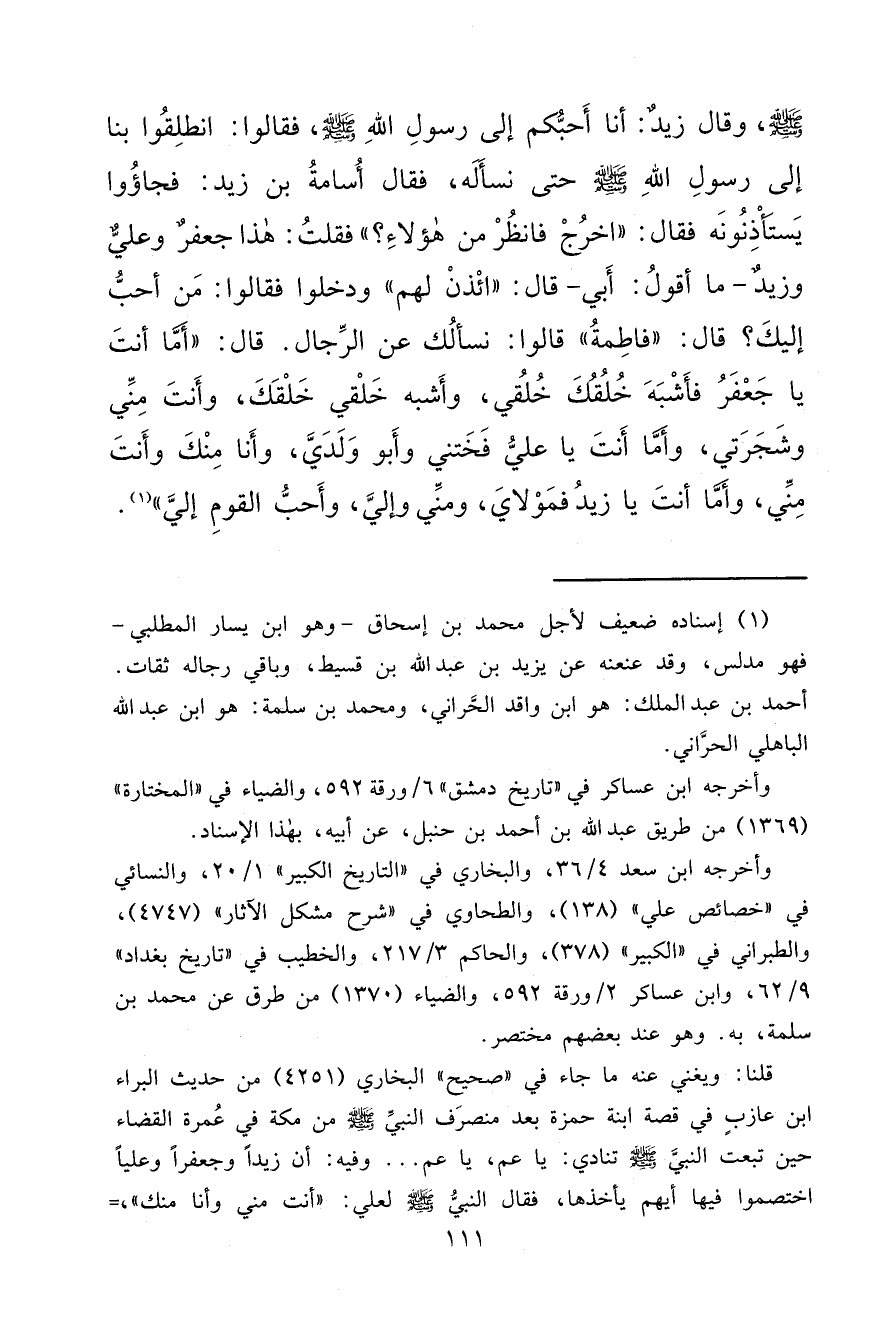 ﷺ، وقال زيدٌ: أنا أَحبُّكم إلى رسولِ اللهِ ﷺ، فقالوا: انطلِقُوا بنا
إلى رسولِ اللهِ ﷺ حتى نسأَلَه، فقال أُسامةُ بن زيد: فجاؤُوا
يَستَأْذِنُونَه فقال: «اخرُجْ فانظُرْ من هٰؤلاءِ؟» فقلتُ: هٰذا جعفرٌ وعليٌّ
وزيدٌ - ما أقولُ: أَبي - قال: «ائْذنْ لهم» ودخلوا فقالوا: مَن أحبُّ
إليكَ؟ قال: «فاطِمةُ» قالوا: نسألُك عن الرِّجال. قال: «أَمَّا أنتَ
يا جَعْفَرُ فأَشْبَهَ خُلُقُكَ خُلُقي، وأَشبه خَلْقي خَلْقَكَ، وأَنتَ مِنِّي
وشَجَرَتي، وأَمَّا أَنتَ يا عليُّ فَخَتني وأَبو وَلَدَيَّ، وأَنا مِنْكَ وأَنتَ
مِنِّي، وأَمَّا أنتَ يا زيدُ فمَوْلايَ، ومنِّي وإليَّ، وأَحبُّ القومِ إليَّ»(١).
(١) إسناده ضعيف لأجل محمد بن إسحاق - وهو ابن يسار المطلبي -
فهو مدلس، وقد عنعنه عن يزيد بن عبد الله بن قسيط، وباقي رجاله ثقات.
أحمد بن عبد الملك: هو ابن واقد الحَّراني، ومحمد بن سلمة: هو ابن عبد الله
الباهلي الحرَّاني.
وأخرجه ابن عساكر في «تاريخ دمشق» ٦/ورقة ٥٩٢، والضياء في «المختارة»
(١٣٦٩) من طريق عبد الله بن أحمد بن حنبل، عن أبيه، بهٰذا الإسناد.
وأخرجه ابن سعد ٣٦/٤، والبخاري في «التاريخ الكبير» ٢٠/١، والنسائي
في «خصائص علي» (١٣٨)، والطحاوي في «شرح مشكل الآثار» (٤٧٤٧)،
والطبراني في «الكبير» (٣٧٨)، والحاكم ٢١٧/٣، والخطيب في «تاريخ بغداد»
٦٢/٩، وابن عساكر ٢/ورقة ٥٩٢، والضياء (١٣٧٠) من طرق عن محمد بن
سلمة، به. وهو عند بعضهم مختصر.
قلنا: ويغني عنه ما جاء في «صحيح» البخاري (٤٢٥١) من حديث البراء
ابن عازبٍ في قصة ابنة حمزة بعد منصرَف النبيِّ ﷺ من مكة في عُمرة القضاء
حين تبعت النبيَّ ﷺ تنادي: يا عم، يا عم... وفيه: أن زيداً وجعفراً وعلياً
اختصموا فيها أيهم يأخذها، فقال النبيُّ ﷺ لعلي: «أنت مني وأنا منك»،=
١١١